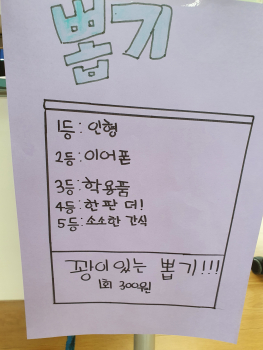 뽑기
1등 : 인형
2등 : 이어폰
3등 : 학용품
4등 : 한 판 더!
5등 : 소소한 간식
꽝이 있는 뽑기!!!
1회 300원